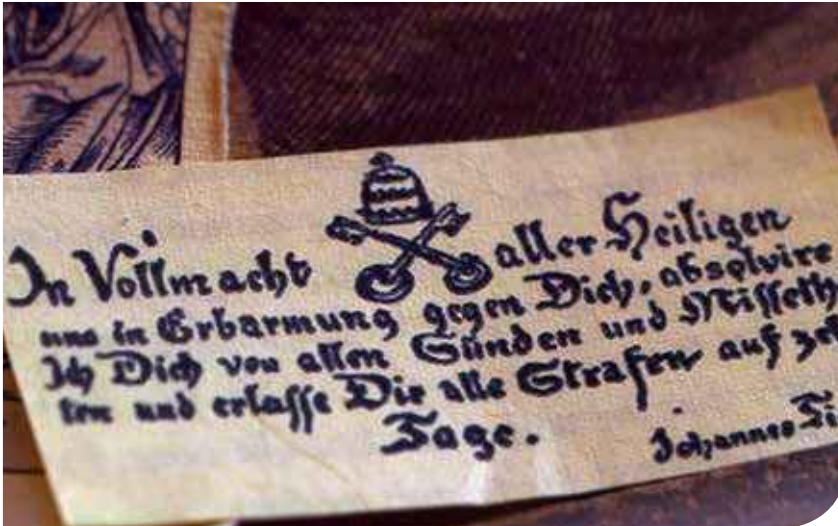 In Vollmacht aller Heiligen
und in Erbarmung gegen Dich, absolvire
Ich Dich von allen Sünden und Misseth
ten und erlasse Dir alle Strafen auf ze
Tage.
Johannes Te